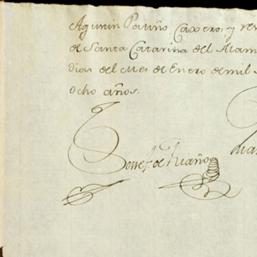 Agustin Patiño Caxero, y ve
de Santa Catarina del Alam
dias del Mes de Enero de mil
ocho años.
de Riaño